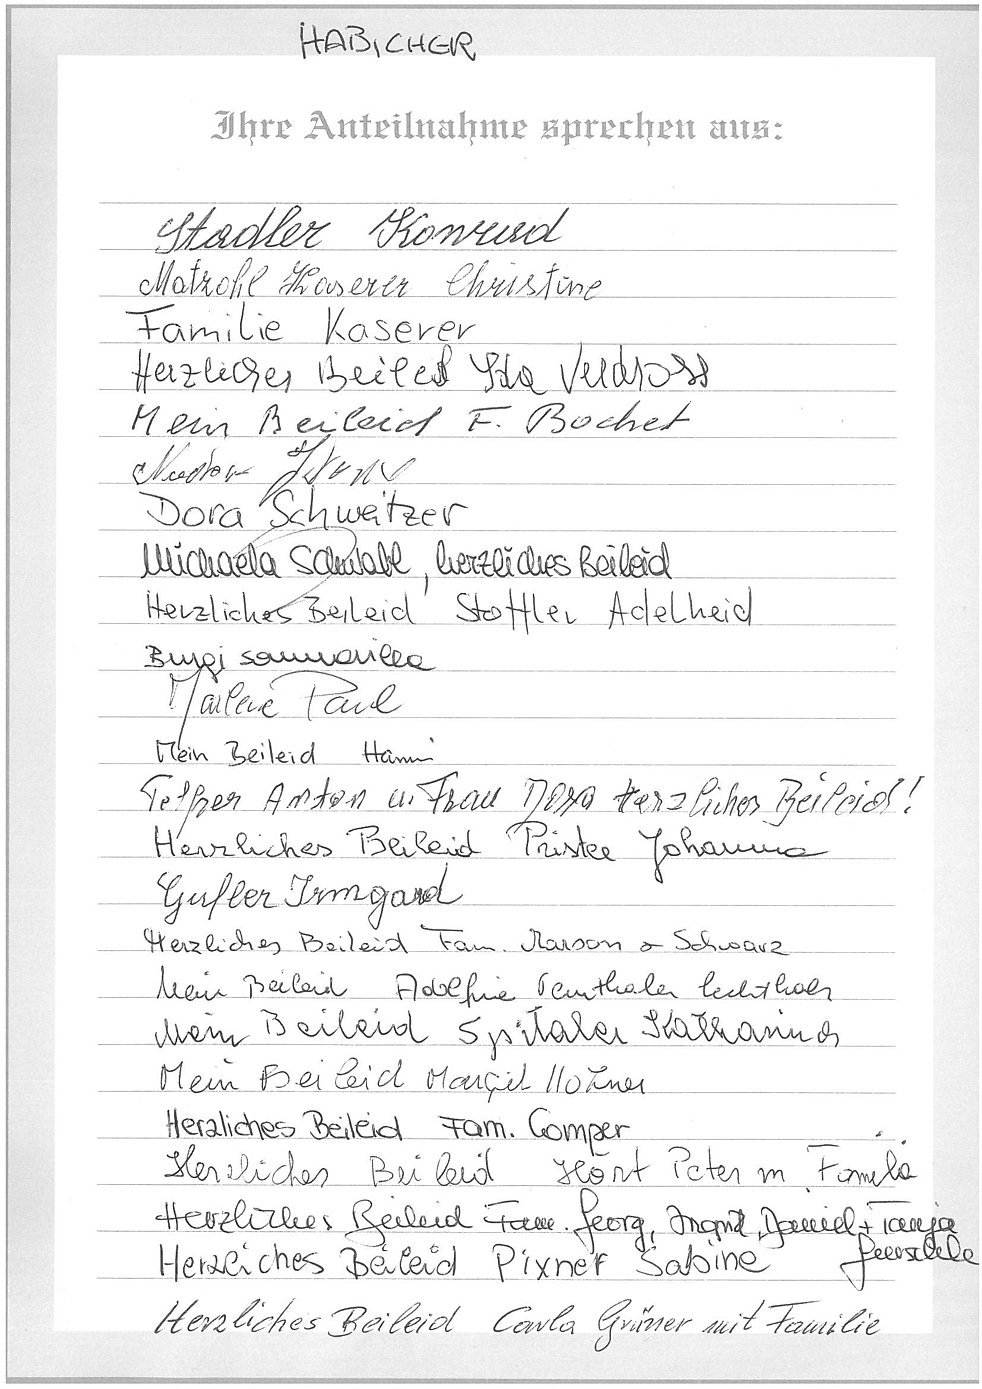 HABICHER
Ihre Anteilnahme sprechen aus:
Stadler Konrad
Kaserer Christine
Familie Kaserer
Herzliches Beileid Ida Verdross
Mein Beileid F. Bachet
Dora Schweitzer
Michaela Schwabl, herzliches Beileid
Herzliches Beileid Stoffler Adelheid
Burgi
Marlene Paul
Mein Beileid Hanni
Telfser Anton u. Frau Dora Herzliches Beileid!
Herzliches Beileid Johanna
Gufler Irmgard
Herzliches Beileid Fam. Marson & Schwarz
Mein Beileid
Mein Beileid Spitaler Katharina
Mein Beileid Margit Holzner
Herzliches Beileid Fam. Gomper
Herzliches Beileid Höst Peter m Familie
Herzliches Beileid Fam. Georg, Ingrid, Daniel + Tanja
Herzliches Beileid Pixner Sabine
Herzliches Beileid Carla Grüner mit Familie